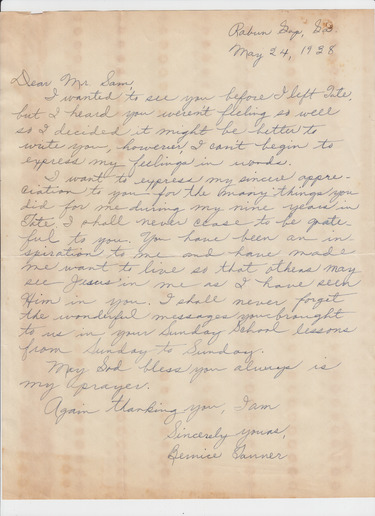 Rabun Gap, Ga.
May 24, 1938
Dear Mr Sam,
I wanted to see you before I left Tate,
but I heard you weren't feeling so well
so I decided it might be better to
write you, however I can't begin to
express my feelings in words.
I want to express my sincere appre-
ciation to you for the many things you
did for me during my nine years in
Tate. I shall never cease to be grate-
ful to you. You have been an in-
spiration to me and have made
me want to live so that others may
see Jesus in me as I have seen
Him in you. I shall never forget
the wonderful messages you brought
to us in your Sunday School lessons
from Sunday to Sunday.
May God bless you always is
my prayer.
Again thanking you, I am
Sincerely yours,
Bernice Tanner